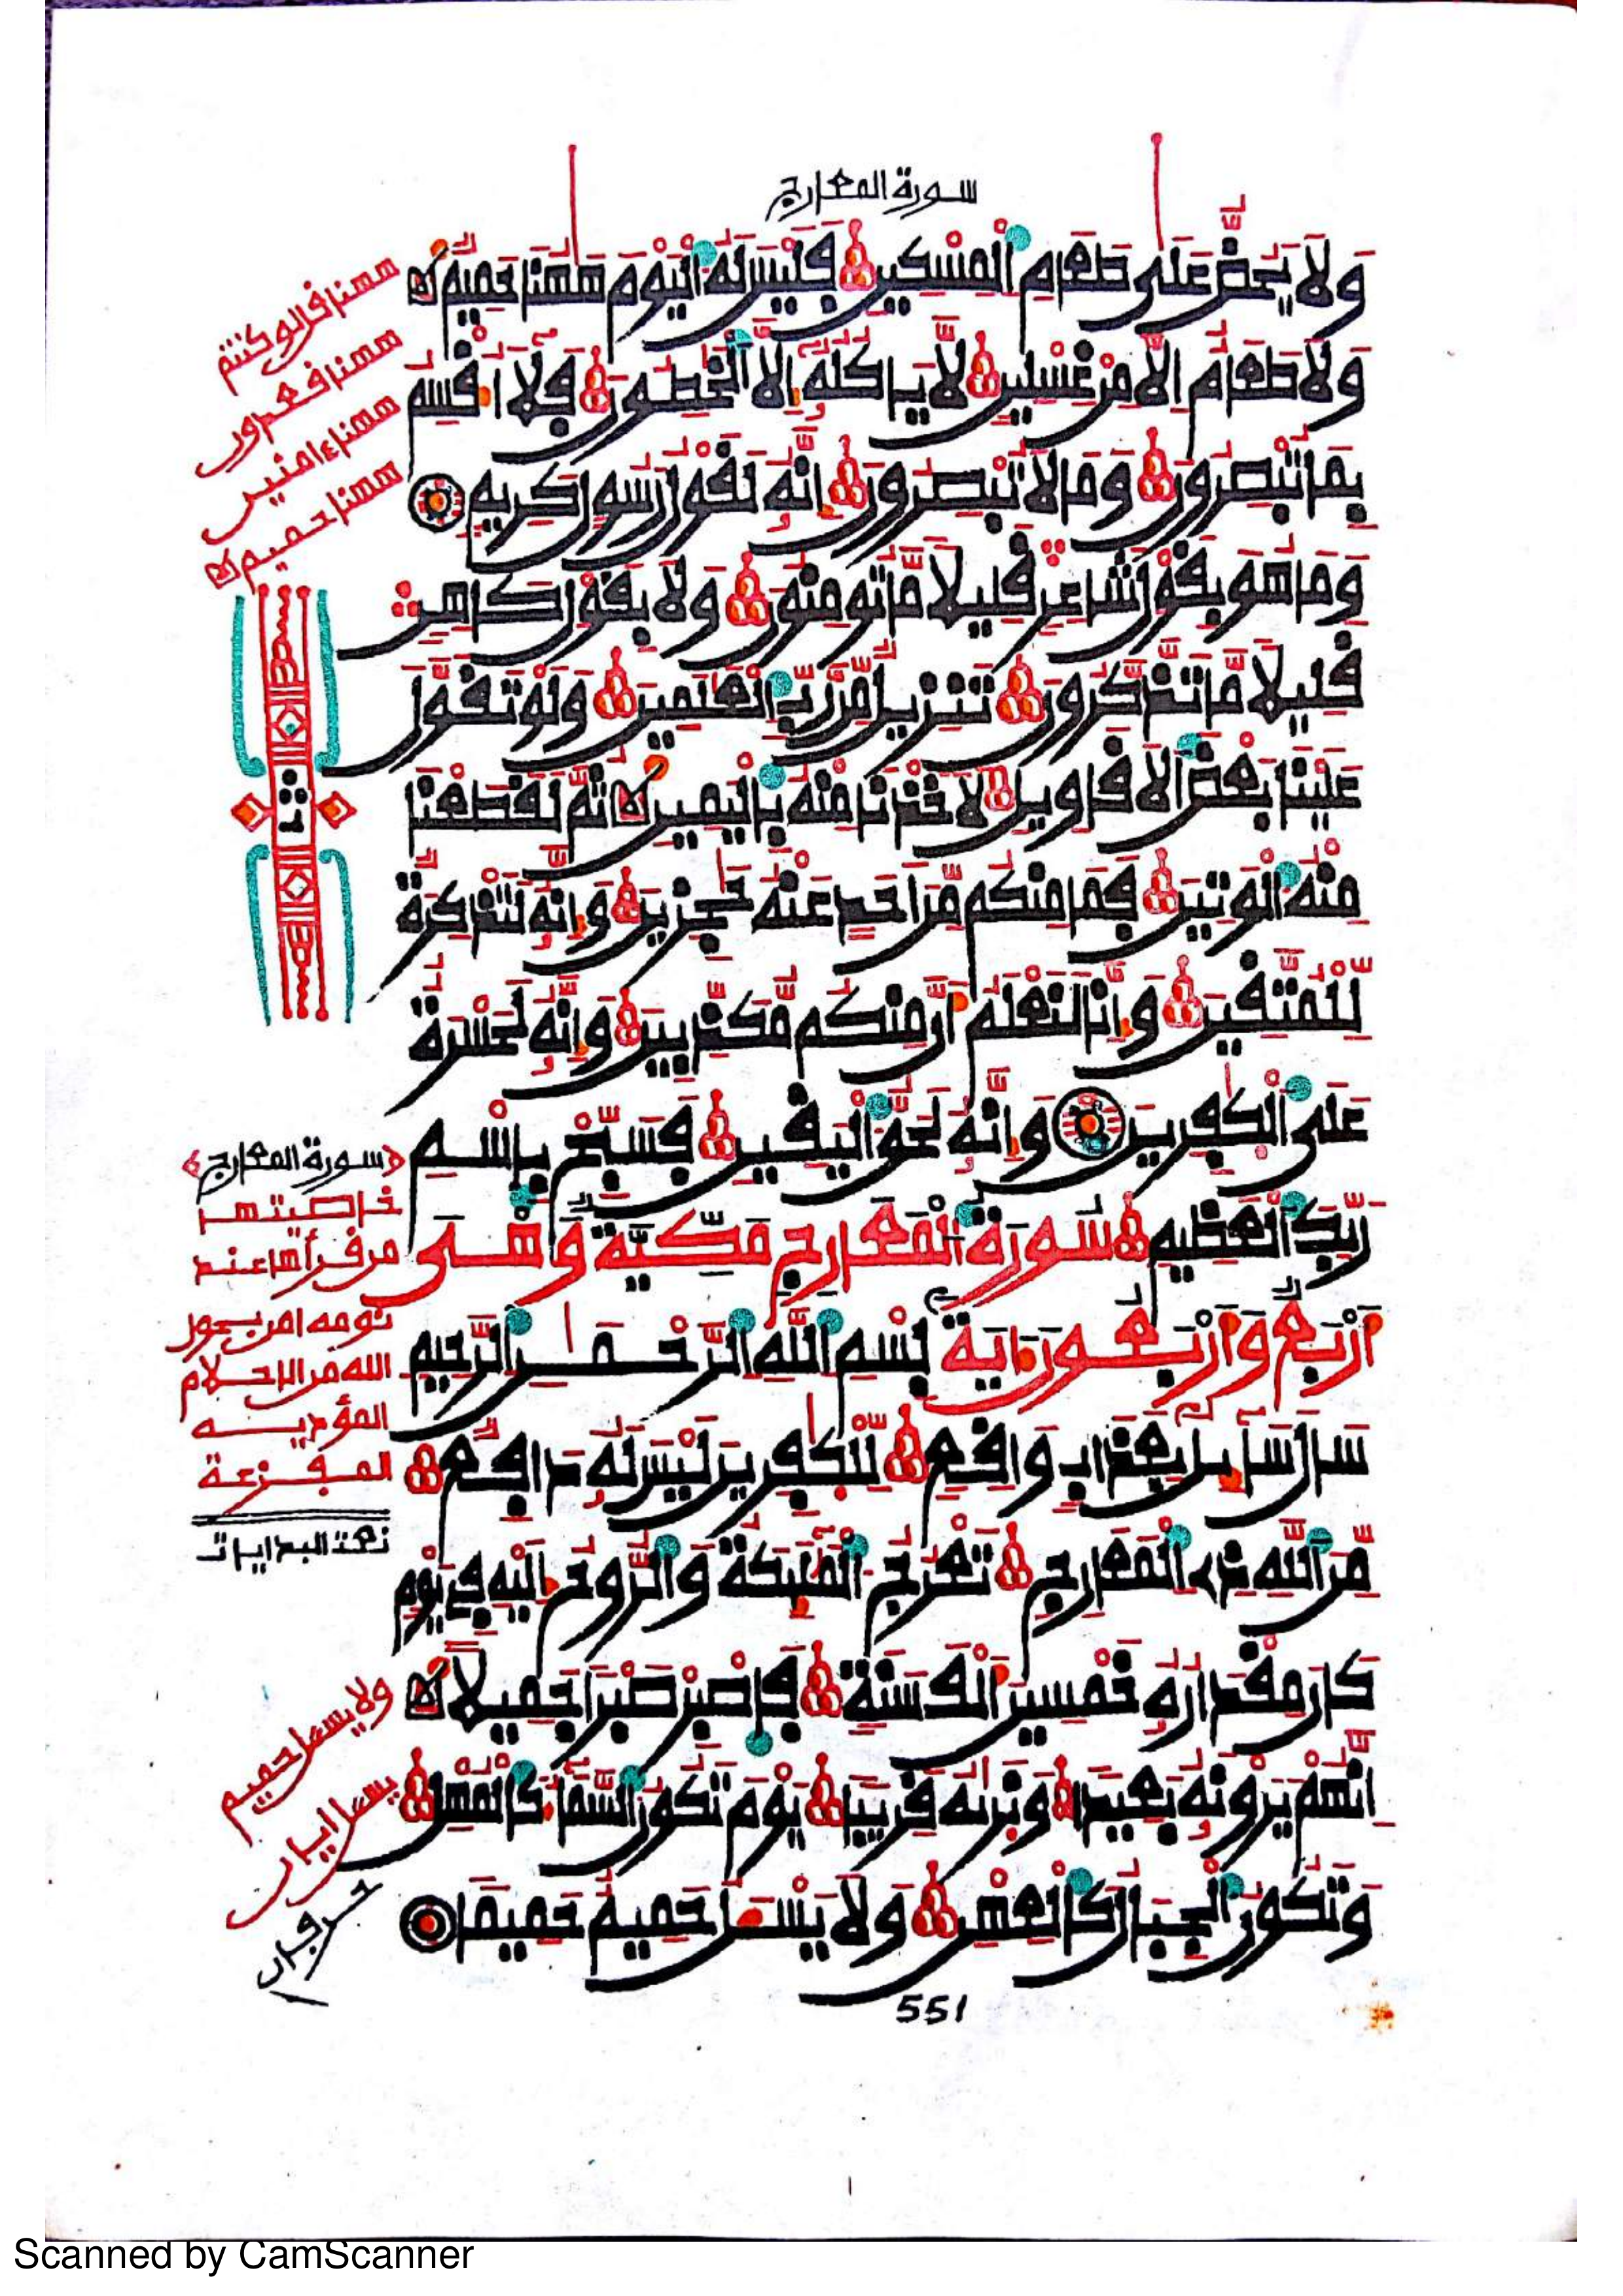 سورة المعارج
وَلَا يَحُضُّ عَلَىٰ طَعَامِ الْمِسْكِينِ فَلَيْسَ لَهُ الْيَوْمَ هَٰهُنَا حَمِيمٌ
وَلَا طَعَامٌ إِلَّا مِنْ غِسْلِينٍ لَّا يَاكُلُهُ إِلَّا الْخَٰطِـُٔونَ فَلَا أُقْسِمُ
بِمَا تُبْصِرُونَ وَمَا لَا تُبْصِرُونَ إِنَّهُ لَقَوْلُ رَسُولٍ كَرِيمٍ
وَمَا هُوَ بِقَوْلِ شَاعِرٍ قَلِيلًا مَّا تُومِنُونَ وَلَا بِقَوْلِ كَاهِنٍ
قَلِيلًا مَّا تَذَّكَّرُونَ تَنزِيلٌ مِّن رَّبِّ الْعَٰلَمِينَ وَلَوْ تَقَوَّلَ
عَلَيْنَا بَعْضَ الْأَقَاوِيلِ لَأَخَذْنَا مِنْهُ بِالْيَمِينِ ثُمَّ لَقَطَعْنَا
مِنْهُ الْوَتِينَ فَمَا مِنكُم مِّنْ أَحَدٍ عَنْهُ حَٰجِزِينَ وَإِنَّهُ لَتَذْكِرَةٌ
لِّلْمُتَّقِينَ وَإِنَّا لَنَعْلَمُ أَنَّ مِنكُم مُّكَذِّبِينَ وَإِنَّهُ لَحَسْرَةٌ
عَلَى الْكَٰفِرِينَ وَإِنَّهُ لَحَقُّ الْيَقِينِ فَسَبِّحْ بِاسْمِ
رَبِّكَ الْعَظِيمِ سُورَةُ الْمَعَارِجِ مَكِّيَّةٌ وَهْىَ
أَرْبَعٌ وَأَرْبَعُونَ ءَايَةً بِسْمِ اللَّهِ الرَّحْمَٰنِ الرَّحِيمِ
سَالَ سَآئِلٌ بِعَذَابٍ وَاقِعٍ لِّلْكَٰفِرِينَ لَيْسَ لَهُ دَافِعٌ
مِّنَ اللَّهِ ذِي الْمَعَارِجِ تَعْرُجُ الْمَلَٰٓئِكَةُ وَالرُّوحُ إِلَيْهِ فِي يَوْمٍ
كَانَ مِقْدَارُهُ خَمْسِينَ أَلْفَ سَنَةٍ فَاصْبِرْ صَبْرًا جَمِيلًا
إِنَّهُمْ يَرَوْنَهُ بَعِيدًا وَنَرَىٰهُ قَرِيبًا يَوْمَ تَكُونُ السَّمَآءُ كَالْمُهْلِ
وَتَكُونُ الْجِبَالُ كَالْعِهْنِ وَلَا يَسْـَٔلُ حَمِيمٌ حَمِيمًا
551
ههنا قل لو كنتم
ههنا قعدون
ههنا ءامنين
ههنا حميم
سورة المعارج
خاصيتها
من قرأها عند
نومه امن بحول
الله من الاحلام
المؤدية
المفزعة
تمت البدايات
ولا يسءل حميم
يسءل ايان
حرفان
Scanned by CamScanner